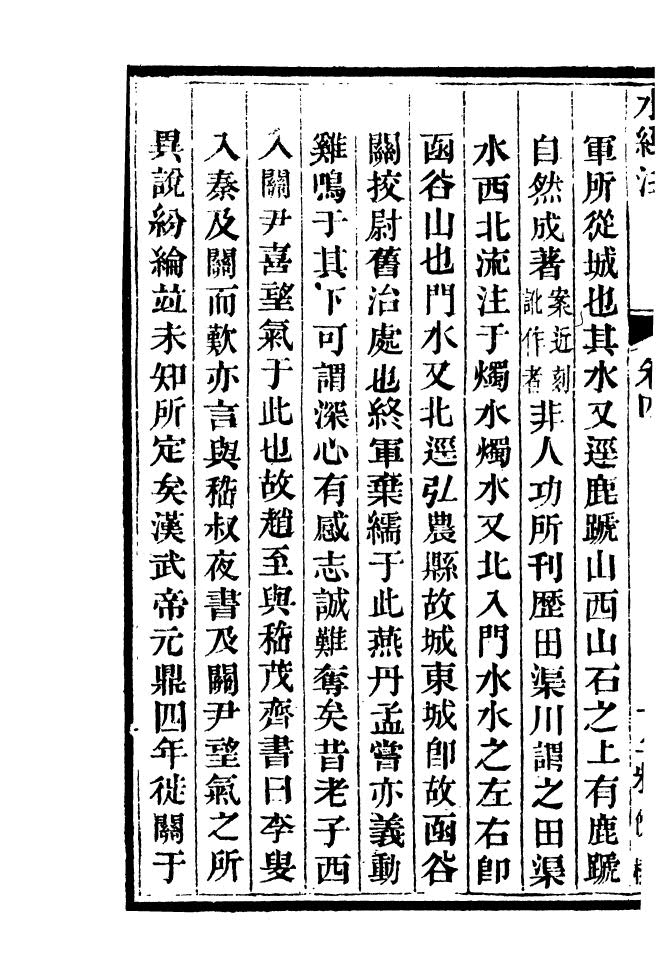 水經注 卷四
軍所從城也其水又逕鹿蹏山西山石之上有鹿蹏
自然成著案近刻訛作者非人功所刊歷田渠川謂之田渠
水西北流注于燭水燭水又北入門水水之左右卽
函谷山也門水又北逕弘農縣故城東城卽故函谷
關挍尉舊治處也終軍棄繻于此燕丹孟嘗亦義動
雞鳴于其下可謂深心有感志誠難奪矣昔老子西
入關尹喜望氣于此也故趙至與嵇茂齊書曰李叟
入秦及關而歎亦言與嵇叔夜書及關尹望氣之所
異說紛綸竝未知所定矣漢武帝元鼎四年徙關于